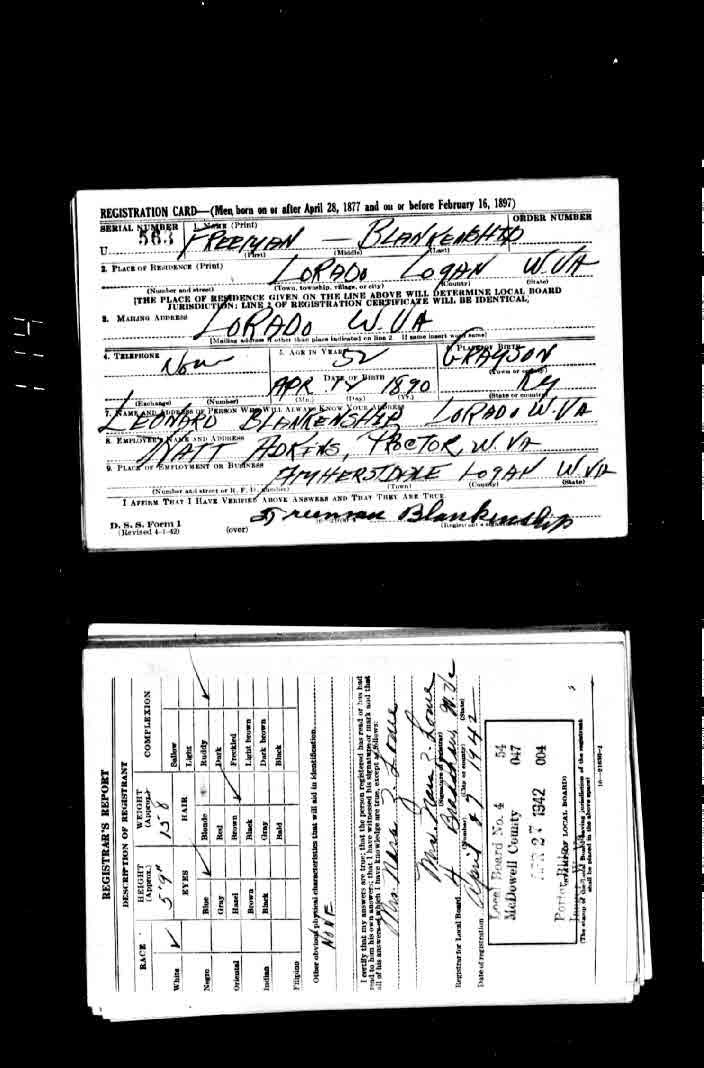 REGISTRATION CARD—(Men born on or after April 28, 1877 and on or before February 16, 1897)
SERIAL NUMBER 1. NAME (Print) ORDER NUMBER
U 563 FREEMAN — BLANKENSHIP
(First) (Middle) (Last)
2. PLACE OF RESIDENCE (Print)
LORADO LOGAN W.VA
(Number and street) (Town, township, village, or city) (County) (State)
[THE PLACE OF RESIDENCE GIVEN ON THE LINE ABOVE WILL DETERMINE LOCAL BOARD
JURISDICTION; LINE 2 OF REGISTRATION CERTIFICATE WILL BE IDENTICAL]
3. MAILING ADDRESS
LORADO W VA
[Mailing address if other than place indicated on line 2. If same insert word same]
4. TELEPHONE 5. AGE IN YEARS 6. PLACE OF BIRTH
None 52 GRAYSON
(Town or county)
DATE OF BIRTH
APR. 1890 Ky
(Exchange) (Number) (Mo.) (Day) (Yr.) (State or country)
7. NAME AND ADDRESS OF PERSON WHO WILL ALWAYS KNOW YOUR ADDRESS
LEONARD BLANKENSHIP LORADO W.VA
8. EMPLOYER'S NAME AND ADDRESS
ADKINS, PROCTOR, W.VA
9. PLACE OF EMPLOYMENT OR BUSINESS
AMHERSTDALE LOGAN W VA
(Number and street or R. F. D. number) (Town) (County) (State)
I AFFIRM THAT I HAVE VERIFIED ABOVE ANSWERS AND THAT THEY ARE TRUE.
Freeman Blankenship
D. S. S. Form 1
(Revised 4-1-42) (over)
REGISTRAR'S REPORT
DESCRIPTION OF REGISTRANT
RACE HEIGHT (Approx.) WEIGHT (Approx.) COMPLEXION
5' 9" 158
White ✓ EYES HAIR Sallow
Light
Negro Blue ✓ Blonde Ruddy ✓
Gray Red Dark
Oriental Hazel Brown ✓ Freckled
Brown Black Light brown
Indian Black Gray Dark brown
Filipino Bald Black
Other obvious physical characteristics that will aid in identification
NONE
I certify that my answers are true; that the person registered has read or has had
read to him his own answers; that I have witnessed his signature or mark and that
all of his answers of which I have knowledge are true, except as follows:
(Signature of registrar)
Registrar for Local Board 4
(Number) (City or county) (State)
Date of registration April 27 1942
Local Board No. 4 54
McDowell County 047
APR 27 1942 004
(STAMP OF LOCAL BOARD)
(The stamp of the Local Board having jurisdiction of the registrant
shall be placed in the above space)